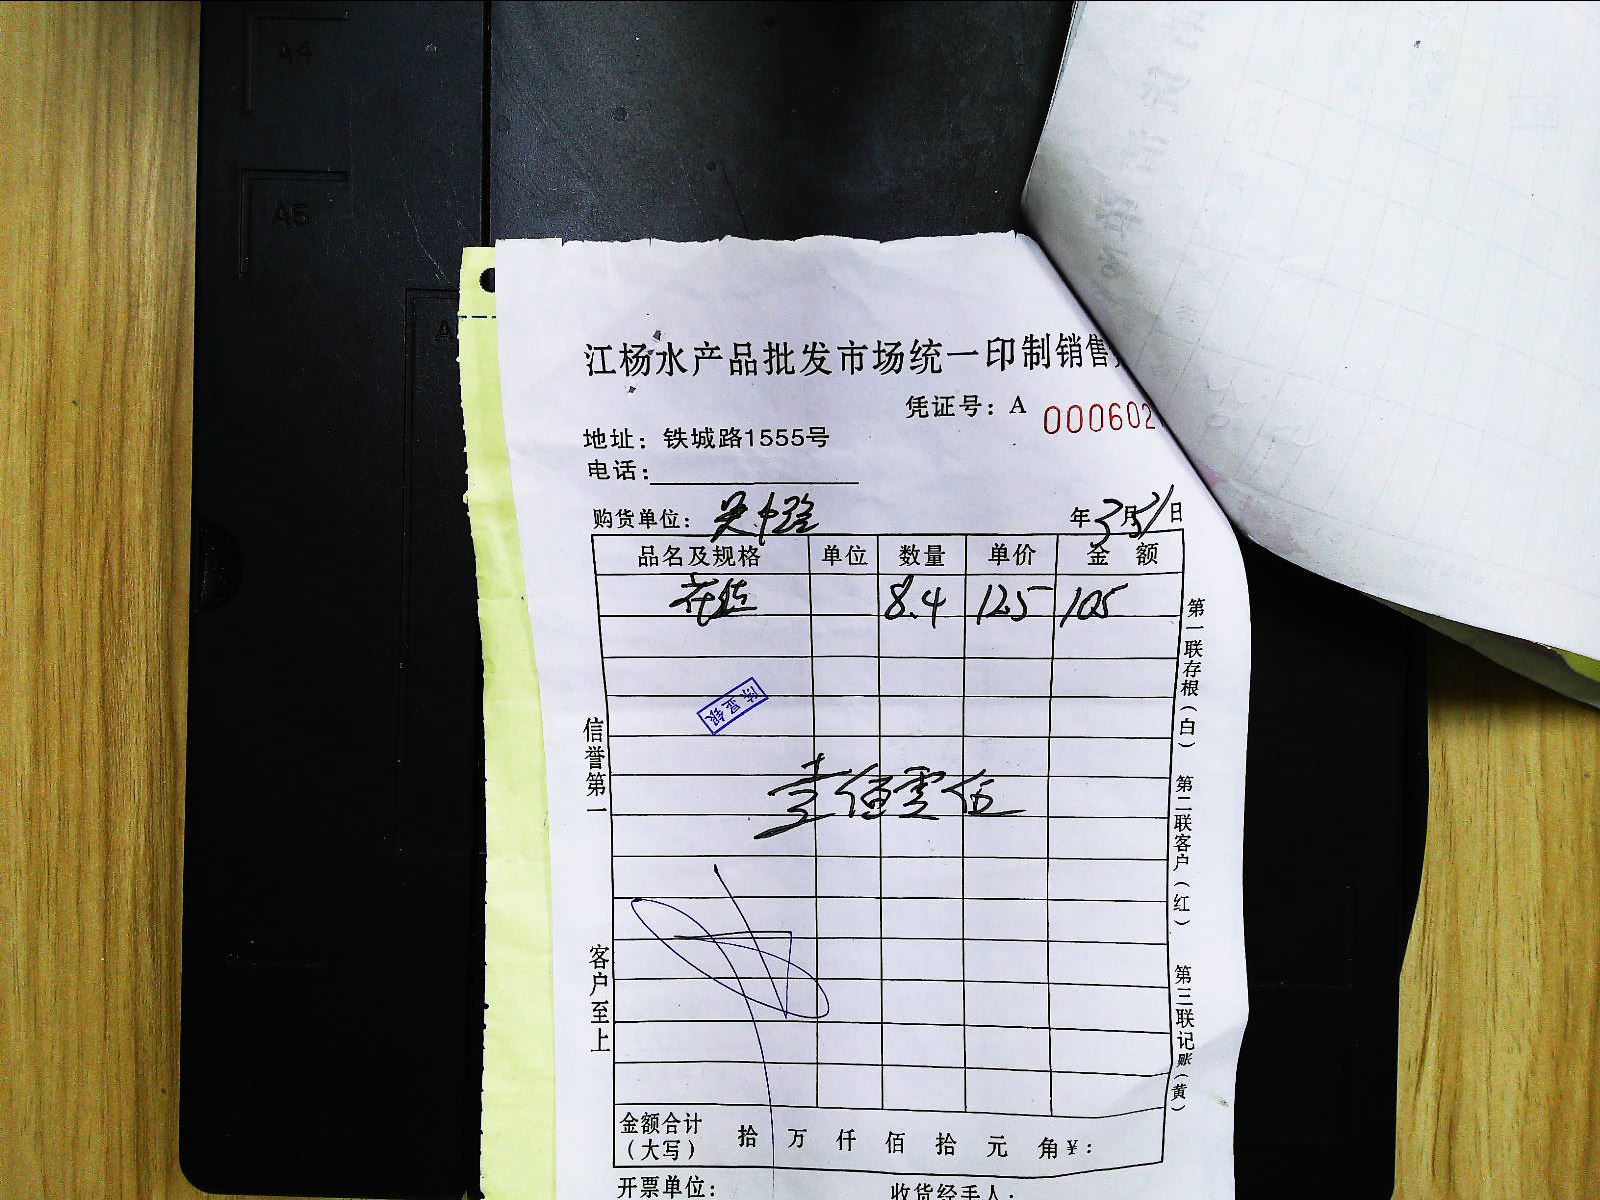 A4
A5
A
江杨水产品批发市场统一印制销售
凭证号：A 000602
地址：铁城路1555号
电话：
购货单位：吴中路 年3月31日
品名及规格 单位 数量 单价 金额
花蛤 8.4 12.5 105
壹佰零伍
信誉第一
客户至上
第一联存根（白）
第二联客户（红）
第三联记账（黄）
金额合计（大写） 拾 万 仟 佰 拾 元 角 ¥：
开票单位： 收货经手人：